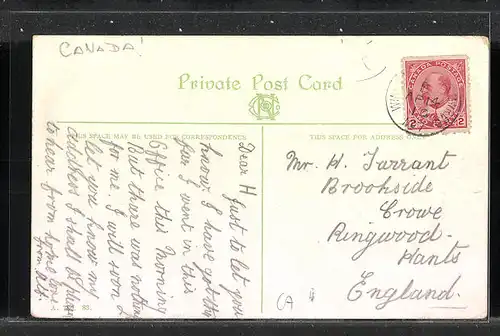 CANADA!
CANADA POSTAGE
2 2
Private Post Card
THIS SPACE MAY BE USED FOR CORRESPONDENCE
THIS SPACE FOR ADDRESS ONLY
Dear H Just to let you
know I have got this
far I went in this
Office this Morning
But there was nothing
for me. I will soon
let you know my
address I shall be
to hear from home love
from
Mr. H. Tarrant
Brookside
Crowe
Ringwood.
Hants
England.
CA